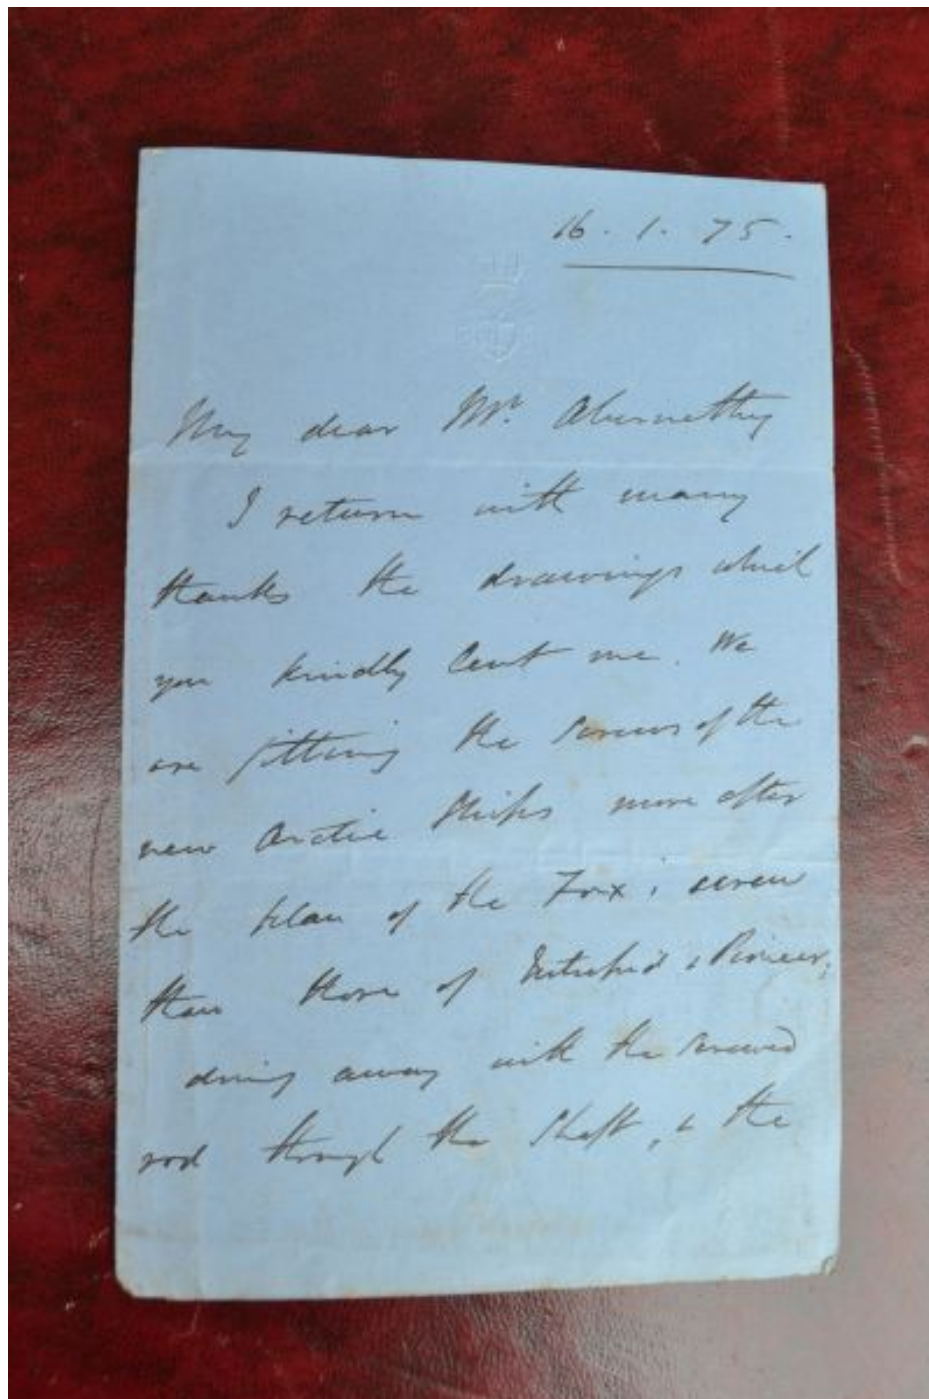 16. 1. 75.
My dear Mr. Abernethy
I return with many
thanks the drawings which
you kindly lent me. We
are fitting the screws of the
new Arctic Ships more after
the plan of the Fox's screw
than those of Intrepid & Pioneer,
doing away with the screwed
rod through the shaft, & the